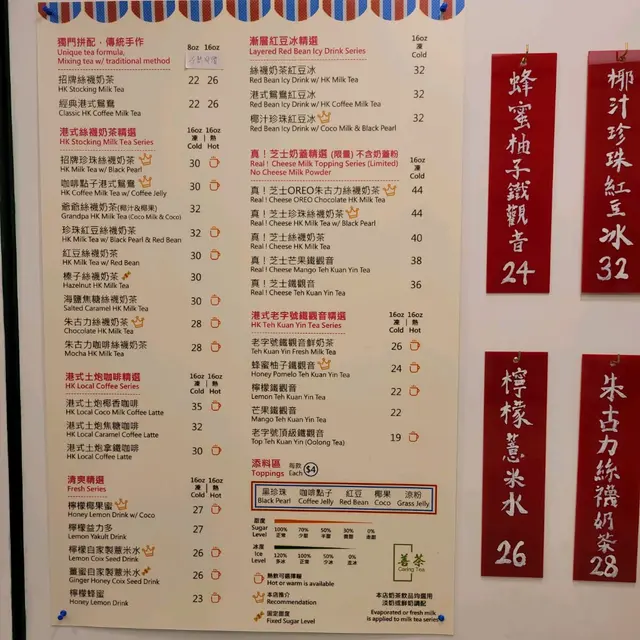 獨門拼配，傳統手作
Unique tea formula,
Mixing tea w/ traditional method
8oz 16oz
招牌絲襪奶茶
HK Stocking Milk Tea
22 26
經典港式鴛鴦
Classic HK Coffee Milk Tea
22 26
港式絲襪奶茶精選
HK Stocking Milk Tea Series
16oz 16oz
凍 | 熱
Cold Hot
招牌珍珠絲襪奶茶
HK Milk Tea w/ Black Pearl
30
咖啡點子港式鴛鴦
HK Coffee Milk Tea w/ Coffee Jelly
30
爺爺絲襪奶茶(椰汁&椰果)
Grandpa HK Milk Tea (Coco Milk & Coco)
32
珍珠紅豆絲襪奶茶
HK Milk Tea w/ Black Pearl & Red Bean
32
紅豆絲襪奶茶
HK Milk Tea w/ Red Bean
30
榛子絲襪奶茶
Hazelnut HK Milk Tea
30
海鹽焦糖絲襪奶茶
Salted Caramel HK Milk Tea
30
朱古力絲襪奶茶
Chocolate HK Milk Tea
28
朱古力咖啡絲襪奶茶
Mocha HK Milk Tea
28
港式土炮咖啡精選
HK Local Coffee Series
16oz 16oz
凍 | 熱
Cold Hot
港式土炮椰香咖啡
HK Local Coco Milk Coffee Latte
35
港式土炮焦糖咖啡
HK Local Caramel Coffee Latte
32
港式土炮拿鐵咖啡
HK Local Coffee Latte
30
清爽精選
Fresh Series
16oz 16oz
凍 | 熱
Cold Hot
檸檬椰果蜜
Honey Lemon Drink w/ Coco
27
檸檬益力多
Lemon Yakult Drink
27
檸檬自家製薏米水
Lemon Coix Seed Drink
26
薑蜜自家製薏米水
Ginger Honey Coix Seed Drink
26
檸檬蜂蜜
Honey Lemon Drink
23
漸層紅豆冰精選
Layered Red Bean Icy Drink Series
16oz
凍
Cold
絲襪奶茶紅豆冰
Red Bean Icy Drink w/ HK Milk Tea
32
港式鴛鴦紅豆冰
Red Bean Icy Drink w/ HK Coffee Milk Tea
32
椰汁珍珠紅豆冰
Red Bean Icy Drink w/ Coco Milk & Black Pearl
32
真！芝士奶蓋精選 (限量) 不含奶蓋粉
Real ! Cheese Milk Topping Series (Limited)
No Cheese Milk Powder
16oz
凍
Cold
真！芝士OREO朱古力絲襪奶茶
Real ! Cheese OREO Chocolate HK Milk Tea
44
真！芝士珍珠絲襪奶茶
Real ! Cheese HK Milk Tea w/ Black Pearl
44
真！芝士絲襪奶茶
Real ! Cheese HK Milk Tea
40
真！芝士芒果鐵觀音
Real ! Cheese Mango Teh Kuan Yin Tea
38
真！芝士鐵觀音
Real ! Cheese Teh Kuan Yin Tea
36
港式老字號鐵觀音精選
HK Teh Kuan Yin Tea Series
16oz 16oz
凍 | 熱
Cold Hot
老字號鐵觀音鮮奶茶
Teh Kuan Yin Fresh Milk Tea
26
蜂蜜柚子鐵觀音
Honey Pomelo Teh Kuan Yin Tea
24
檸檬鐵觀音
Lemon Teh Kuan Yin Tea
22
芒果鐵觀音
Mango Teh Kuan Yin Tea
22
老字號頂級鐵觀音
Top Teh Kuan Yin (Oolong Tea)
19
添料區
Toppings
每款
Each $4
黑珍珠 咖啡點子 紅豆 椰果 涼粉
Black Pearl Coffee Jelly Red Bean Coco Grass Jelly
甜度
Sugar Level
100% 70% 50% 30% 0%
正常 少甜 半甜 微甜 走甜
冰度
Ice Level
120% 100% 50% 0%
多冰 正常 少冰 走冰
熱飲可選擇報
Hot or warm is available
本店推介
Recommendation
固定甜度
Fixed Sugar Level
善茶
Caring Tea
本店奶茶飲品均選用
淡奶或鮮奶調配
Evaporated or fresh milk
is applied to milk tea series
蜂蜜柚子鐵觀音
24
椰汁珍珠紅豆冰
32
檸檬薏米水
26
朱古力絲襪奶茶
28